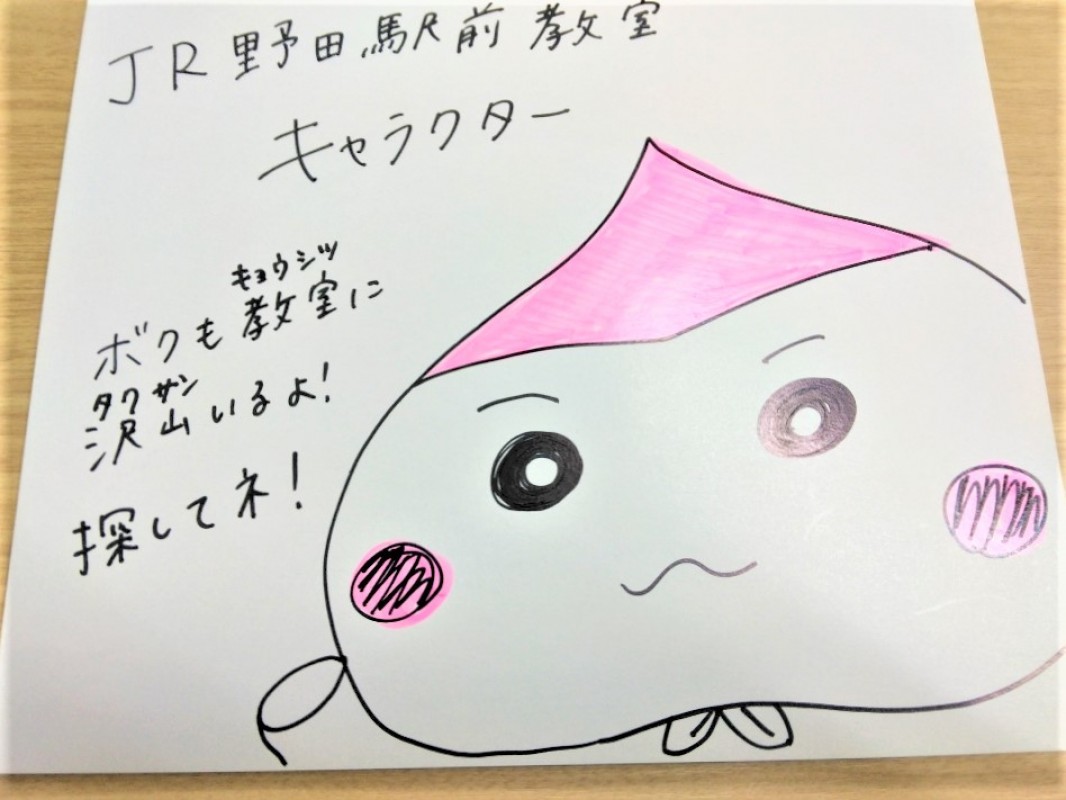 JR野田駅前教室
キャラクター
キョウシツ
ボクも教室に
タクサン
沢山いるよ!
探してネ!